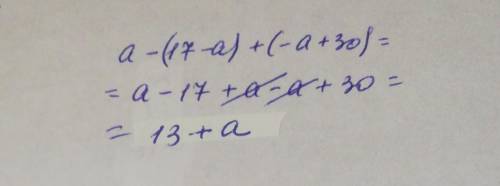 a-(17-a)+(-a+30)=
=a-17+a-a+30=
=13+a